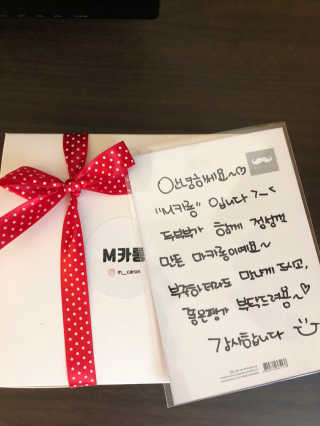 안녕하세요~♡
"M카롱" 입니다 ㅋ~<
두부부가 함께 정성껏
만든 마카롱이에요~
부족하더라도 맛나게 드시고,
좋은평가 부탁드려용~♡
감사합니다
M카롱